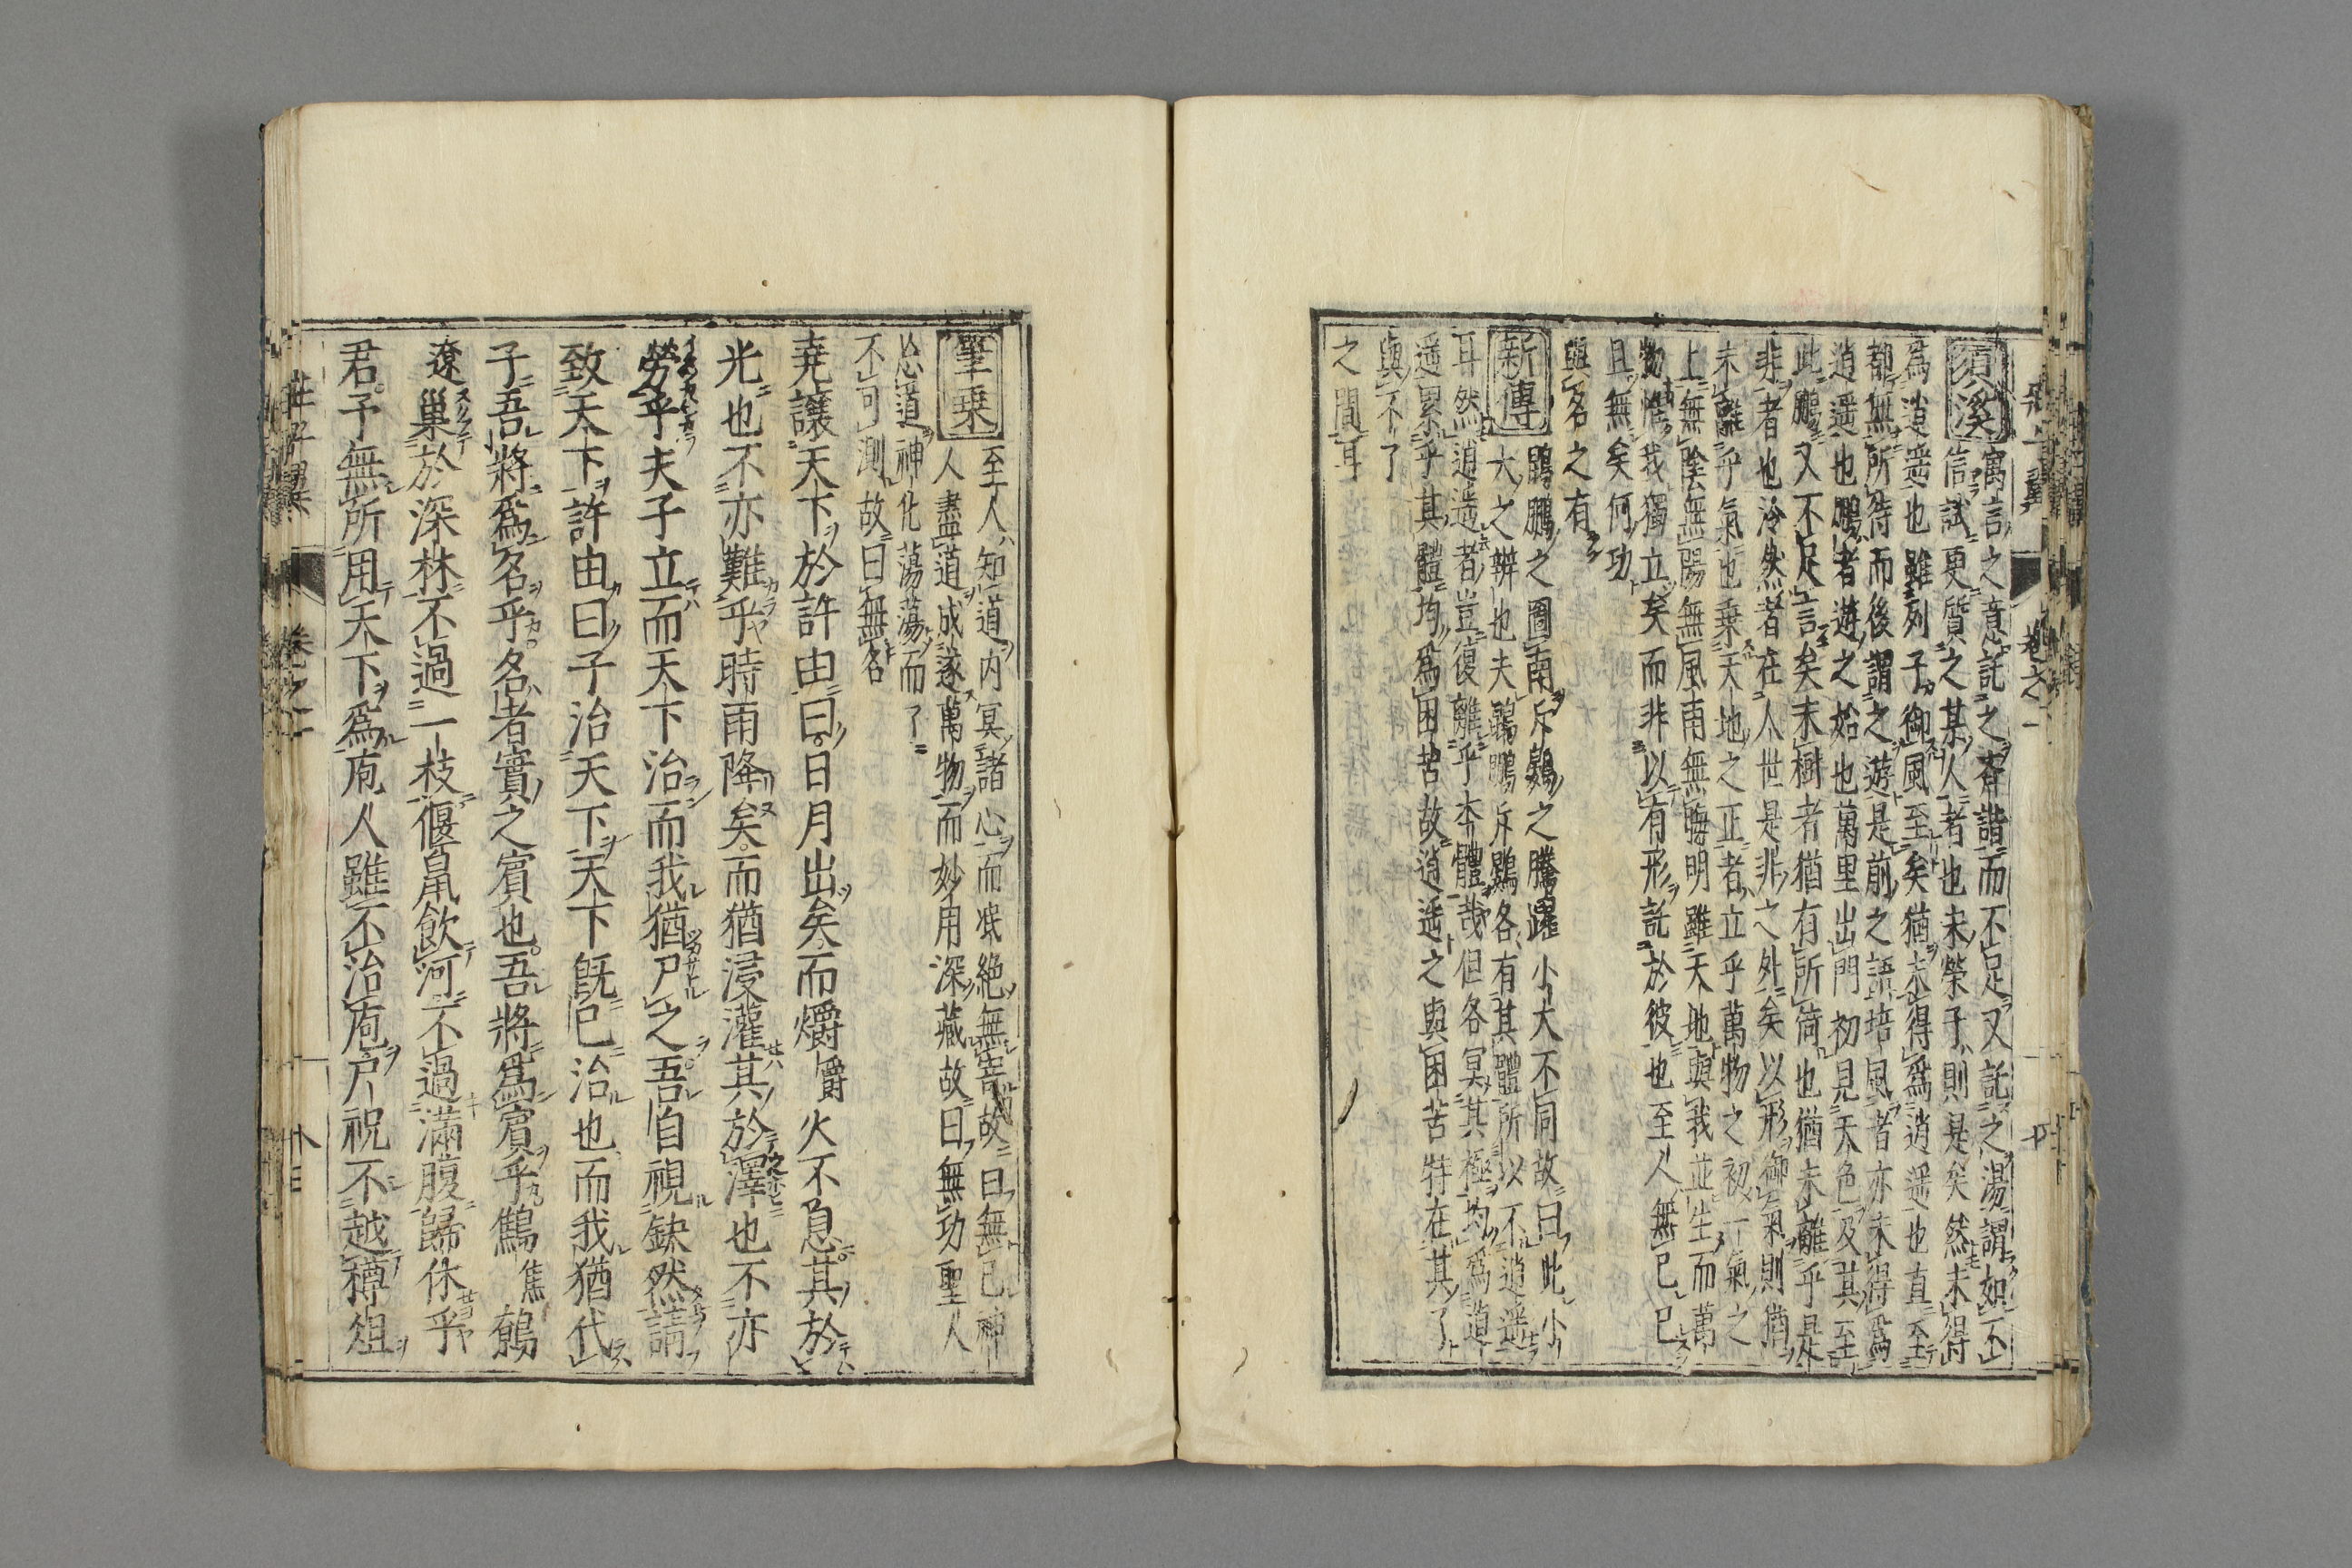 須溪
寓言之意託之齊諧而不足又託之湯謂如不
信試更質之某人者也未榮子則是矣然未得
爲逍遥也雖列子御風至矣猶未得爲逍遥也直至
都無所待而後謂之遊是前之語培風者亦未得爲
逍遥也鵬者遊之始也萬里出門初見天色及其至
此鵬又不足言矣未樹者猶有所倚也猶未離乎是
非者也泠然者在人世是非之外矣以形御氣則猶
未離乎氣也乗天地之正者立乎萬物之初一氣之
上無陰無陽無風雨無晦明雖天地與我並生而萬
物惟我獨立矣而非以有形託於彼也至人無已已
且無矣何功
與名之有
新傳
鵾鵬之圖南斥鷃之騰躍小大不同故曰此小
大之辨也夫鵾鵬斥鷃各有其體所以不逍遥
耳然逍遥者豈復離乎本體哉但各冥其極均爲逍
遥累乎其體均爲困苦故逍遥之與困苦特在其了
與不了
之間耳
筆乗
至人知道内冥諸心而泯絶無寄故曰無已神
人盡道成遂萬物而妙用深藏故曰無功聖人
忘道神化蕩蕩而了
不可測故曰無名
堯讓天下於許由曰日月出矣而爝爵火不息其於
光也不亦難乎時雨降矣而猶浸灌其於澤也不亦
勞乎夫子立而天下治而我猶尸之吾自視缺然請
致天下許由曰子治天下天下既已治也而我猶代
子吾將爲名乎名者實之賓也吾將爲賓乎鷦焦鷯
遼巢於深林不過一枝偃鼠飲河不過滿腹歸休乎
君予無所用天下爲庖人雖不治庖尸祝不越樽俎
莊子翼 卷之一 十三